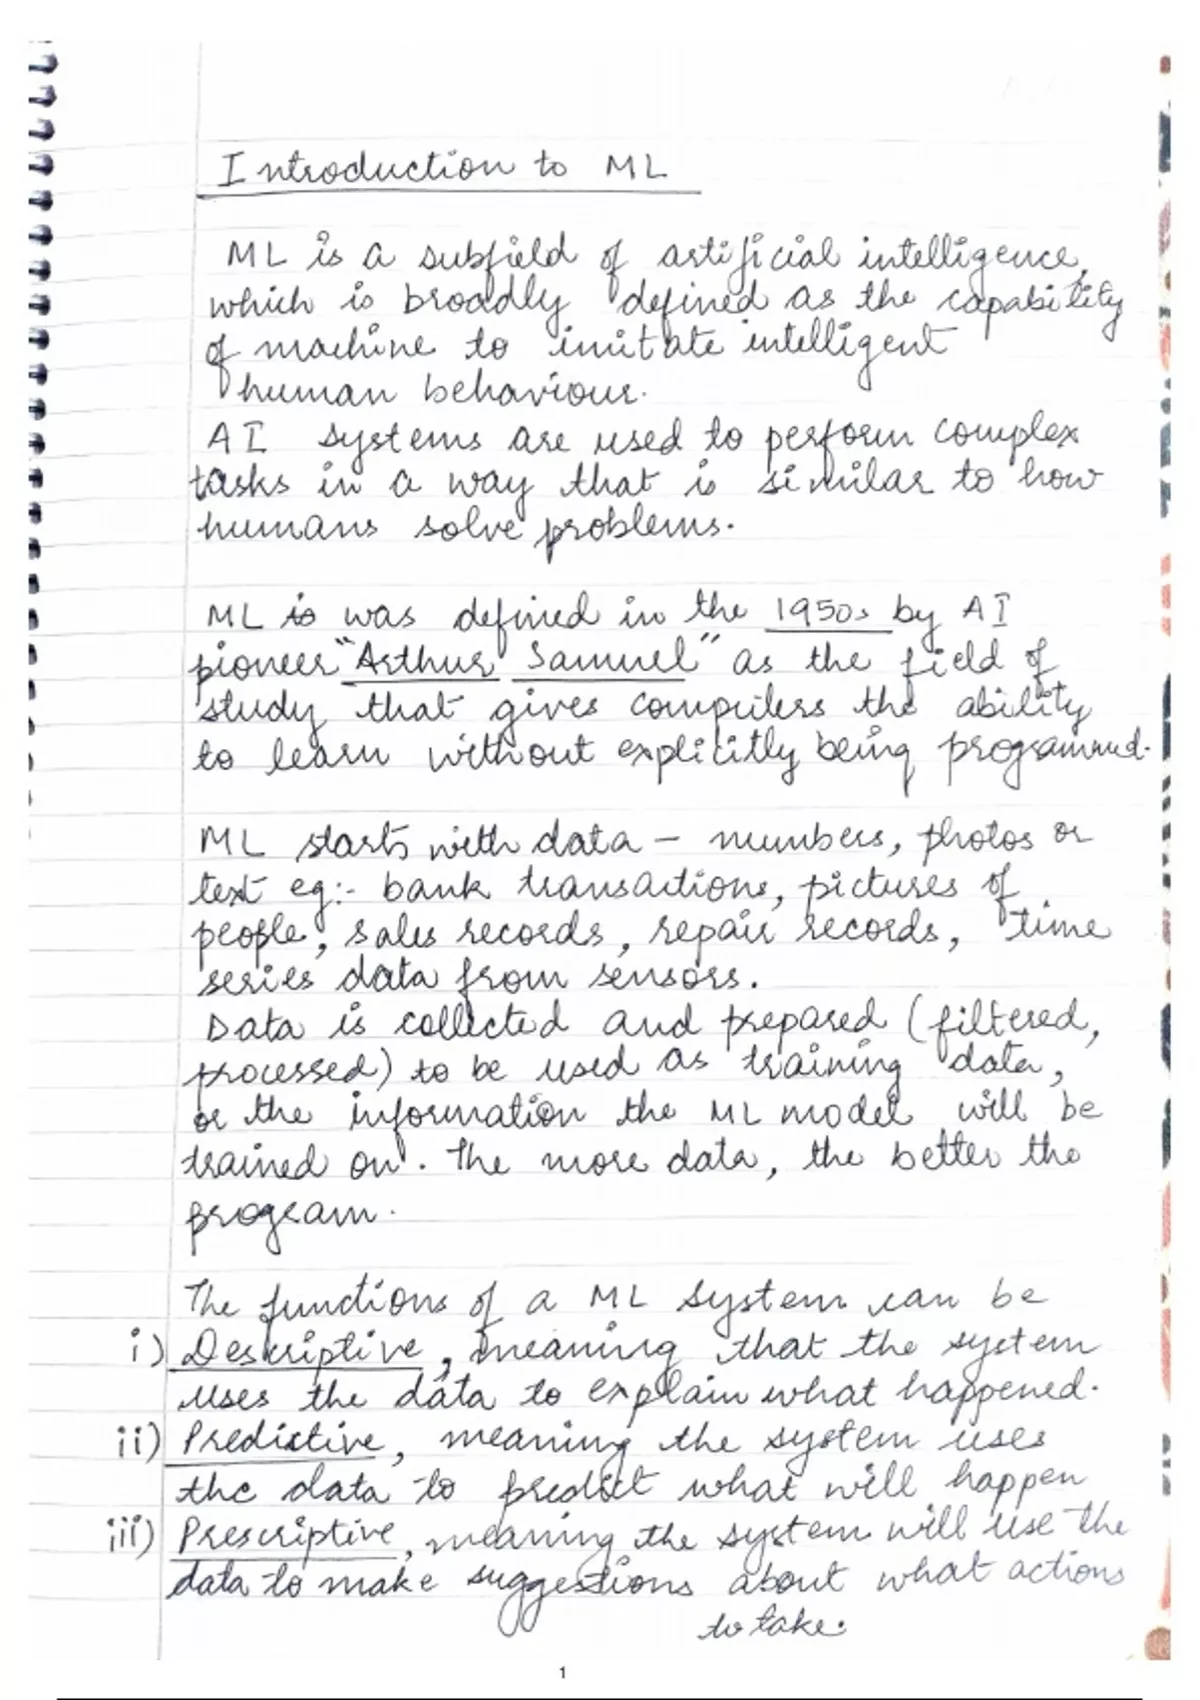 Introduction to ML
ML is a subfield of artificial intelligence,
which is broadly defined as the capability
of machine to imitate intelligent
human behaviour.
AI systems are used to perform complex
tasks in a way that is similar to how
humans solve problems.
ML is was defined in the 1950s by AI
pioneer "Arthur Samuel" as the field of
study that gives computers the ability
to learn without explicitly being programmed.
ML starts with data - numbers, photos or
text eg:- bank transactions, pictures of
people, sales records, repair records, time
series data from sensors.
Data is collected and prepared (filtered,
processed) to be used as training data,
or the information the ML model will be
trained on. The more data, the better the
program.
The functions of a ML system can be
i) Descriptive, meaning that the system
uses the data to explain what happened.
ii) Predictive, meaning the system uses
the data to predict what will happen
iii) Prescriptive, meaning the system will use the
data to make suggestions about what actions
to take.
1